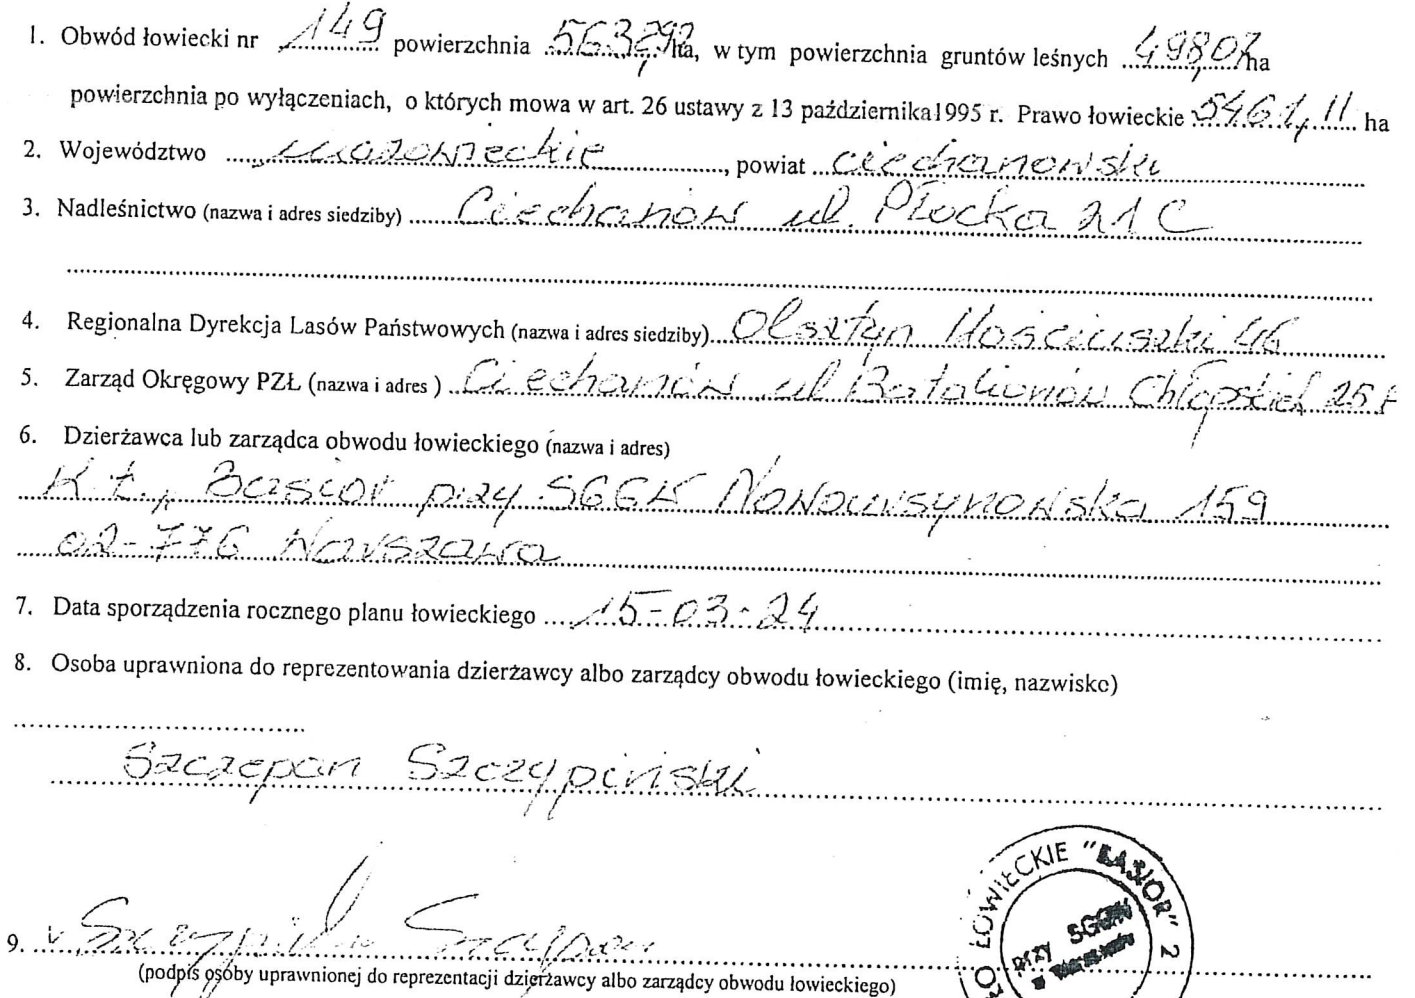 1. Obwód łowiecki nr 149 powierzchnia 5632,92 ha, w tym powierzchnia gruntów leśnych 498,07 ha
powierzchnia po wyłączeniach, o których mowa w art. 26 ustawy z 13 października1995 r. Prawo łowieckie 5461,11 ha
2. Województwo mazowieckie, powiat ciechanowski
3. Nadleśnictwo (nazwa i adres siedziby) Ciechanów ul. Płocka 21 C
4. Regionalna Dyrekcja Lasów Państwowych (nazwa i adres siedziby) Olsztyn Kościuszki 46
5. Zarząd Okręgowy PZŁ (nazwa i adres ) Ciechanów ul Batalionów Chłopskich
6. Dzierżawca lub zarządca obwodu łowieckiego (nazwa i adres)
K.Ł. „Basior przy SGGW Nowoursynowska 159
02-776 Warszawa
7. Data sporządzenia rocznego planu łowieckiego 15-03-24
8. Osoba uprawniona do reprezentowania dzierżawcy albo zarządcy obwodu łowieckiego (imię, nazwisko)
Szczepan Szczypiński
9. Szczepan
(podpis osoby uprawnionej do reprezentacji dzierżawcy albo zarządcy obwodu łowieckiego)
ŁOWIECKIE "BASIOR" 2
przy SGGW
w Warszawie